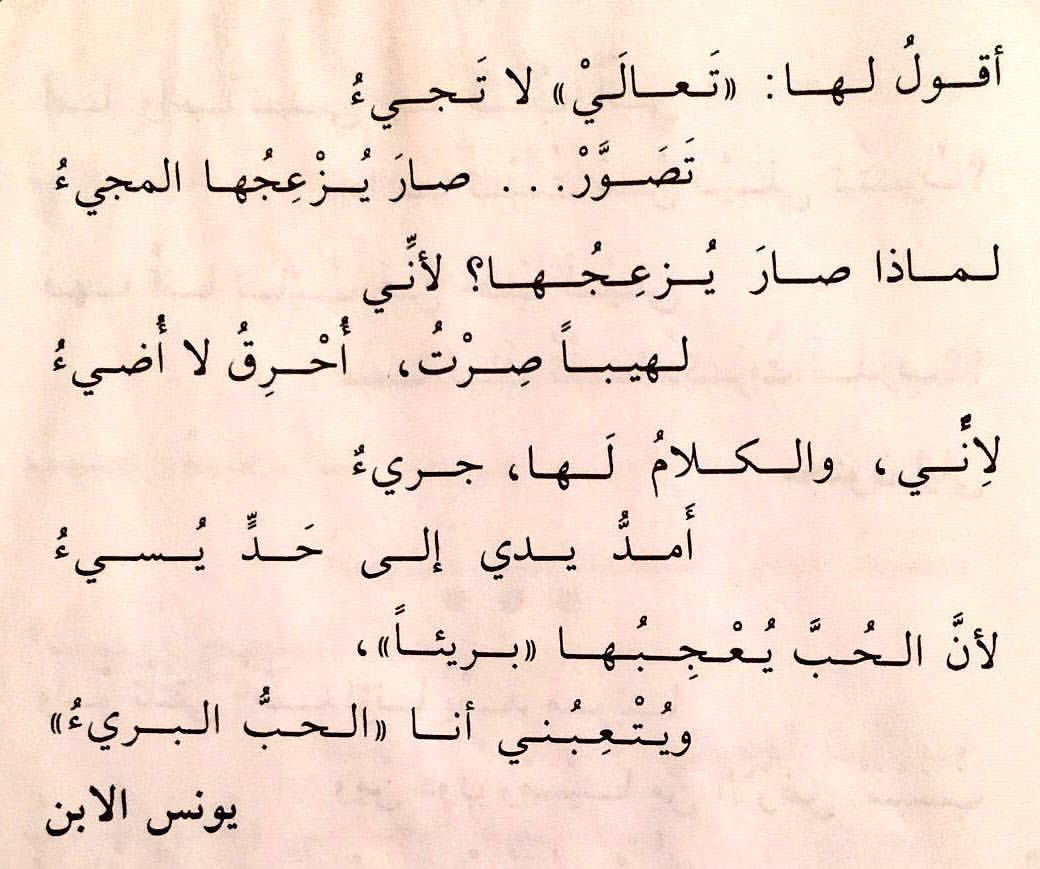 أقولُ لها: «تَعالَيْ» لا تَجيءُ
تَصَوَّرْ... صارَ يُزْعِجُها المجيءُ
لماذا صارَ يُزعِجُها؟ لأنِّي
لهيباً صِرْتُ، أُحْرِقُ لا أُضيءُ
لِأنَّني، والكلامُ لَها، جريءٌ
أَمدُّ يدي إلى حَدٍّ يُسيءُ
لأنَّ الحُبَّ يُعْجِبُها «بريئاً»،
ويُتْعِبُني أنا «الحبُّ البريءُ»
يونس الابن